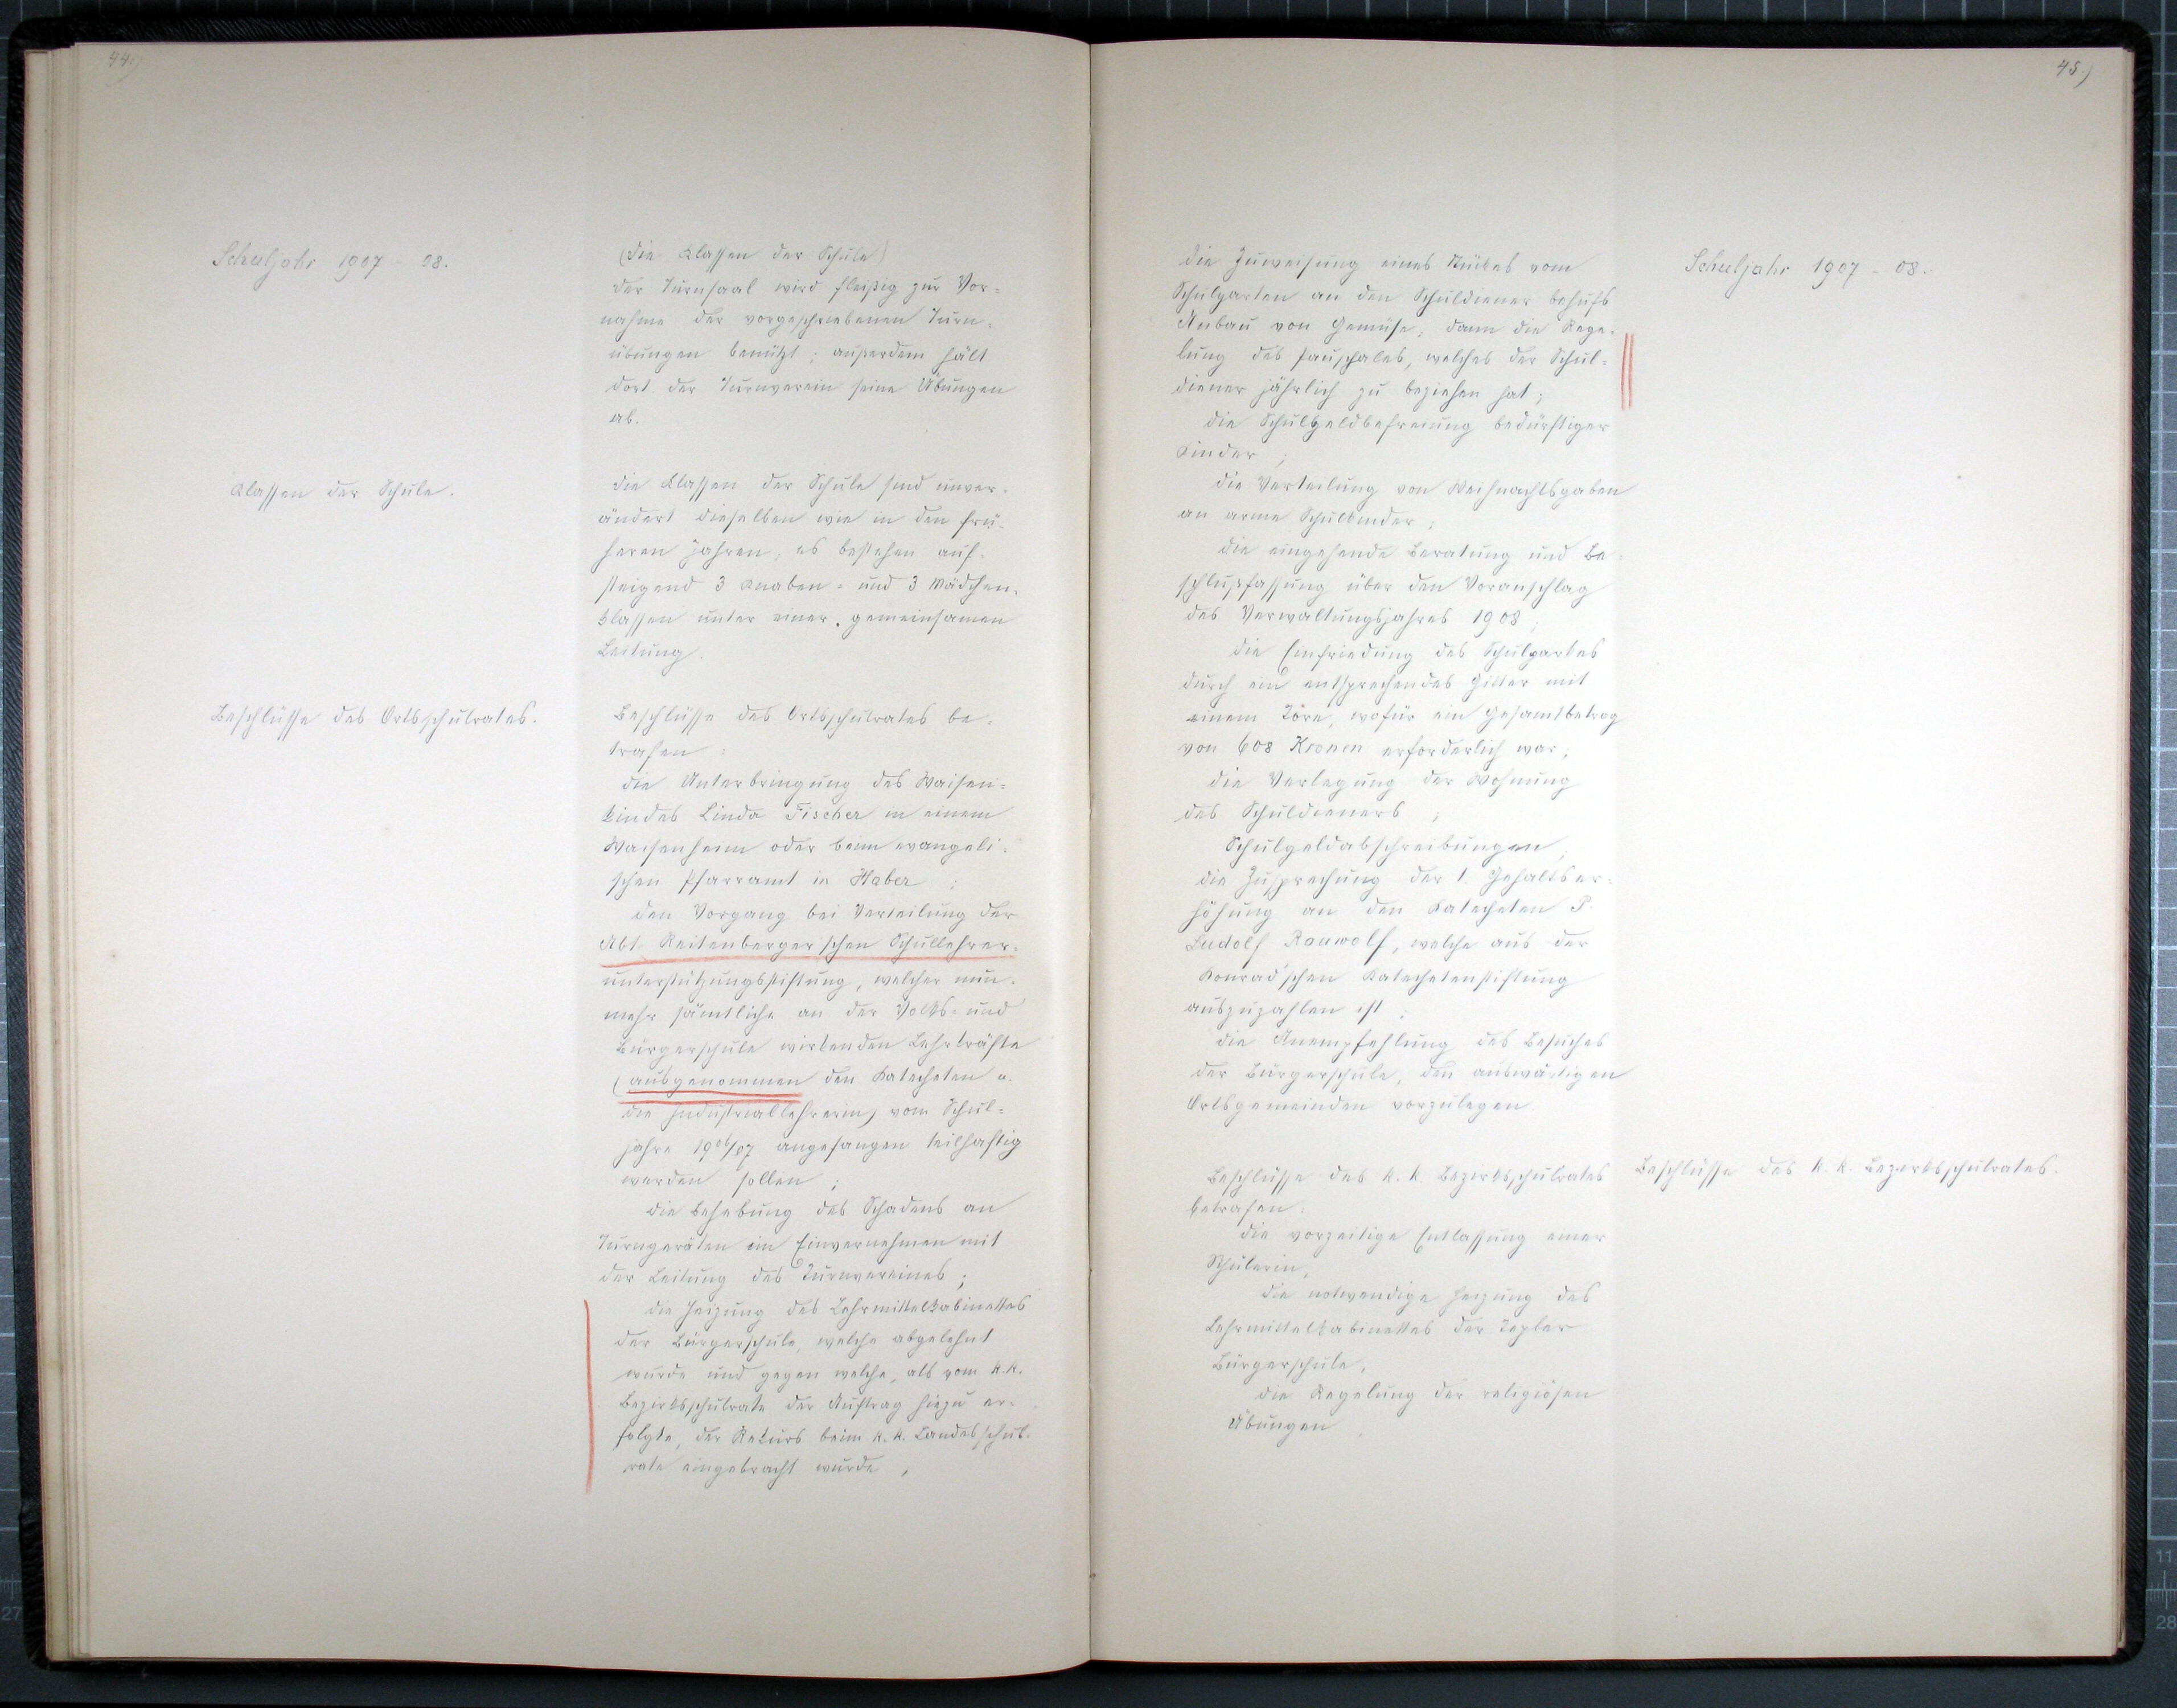 44.)
Schuljahr 1907 - 08.
(Die Klassen der Schule)
Der Turnsaal wird fleißig zur Vor-
nahme der vorgeschriebenen Turn-
übungen benützt; außerdem hält
dort der Turnverein seine Übungen
ab.
Klassen der Schule.
Die Klassen der Schule sind unver-
ändert dieselben wie in den frü-
heren Jahren, es bestehen auf-
steigend 3 Knaben- und 3 Mädchen-
klassen unter einer gemeinsamen
Leitung.
Beschlüsse des Ortsschulrates.
Beschlüsse des Ortsschulrates be-
trafen:
die Unterbringung des Waisen-
kindes Linda Fischer in einem
Waisenheim oder beim evangeli-
schen Pfarramt in Haber;
den Vorgang bei Verteilung der
Abt Reitenberger'schen Schullehrer-
unterstützungsstiftung, welcher nun-
mehr sämtliche an der Volks- und
Bürgerschule wirkenden Lehrkräfte
(ausgenommen den Katecheten u.
die Industriallehrerin) vom Schul-
jahre 1906/07 angefangen teilhaftig
werden sollen;
die Behebung des Schadens an
Turngeräten im Einvernehmen mit
der Leitung des Turnvereines;
die Heizung des Lehrmittelkabinettes
der Bürgerschule, welche abgelehnt
wurde und gegen welche, als vom k.k.
Bezirksschulrate der Auftrag hiezu er-
folgte, der Rekurs beim k. k. Landesschul-
rate eingebracht wurde,
45.)
Schuljahr 1907 - 08.
die Zuweisung eines Stückes vom
Schulgarten an den Schuldiener behufs
Anbau von Gemüse, dann die Rege-
lung des Pauschales, welches der Schul-
diener jährlich zu beziehen hat;
die Schulgeldbefreiung bedürftiger
Kinder;
die Verteilung von Weihnachtsgaben
an arme Schulkinder;
die eingehende Beratung und Be-
schlußfassung über den Voranschlag
des Verwaltungsjahres 1908;
die Einfriedung des Schulparkes
durch ein entsprechendes Gitter mit
einem Töre, wofür ein Gesamtbetrag
von 608 Kronen erforderlich war;
die Verlegung der Wohnung
des Schuldieners;
Schulgeldabschreibungen,
die Zusprechung der 1. Gehaltser-
höhung an den Katecheten P.
Ludolf Rauwolf, welche aus der
Konrad'schen Katechetenstiftung
auszuzahlen ist;
die Anempfehlung des Besuches
der Bürgerschule, den auswärtigen
Ortsgemeinden vorzulegen
Beschlüsse des k. k. Bezirksschulrates.
Beschlüsse des k. k. Bezirksschulrates
betrafen:
die vorzeitige Entlassung einer
Schülerin,
die notwendige Heizung des
Lehrmittelkabinettes der Tepler
Bürgerschule,
die Regelung der religiösen
Übungen,
27
11
28